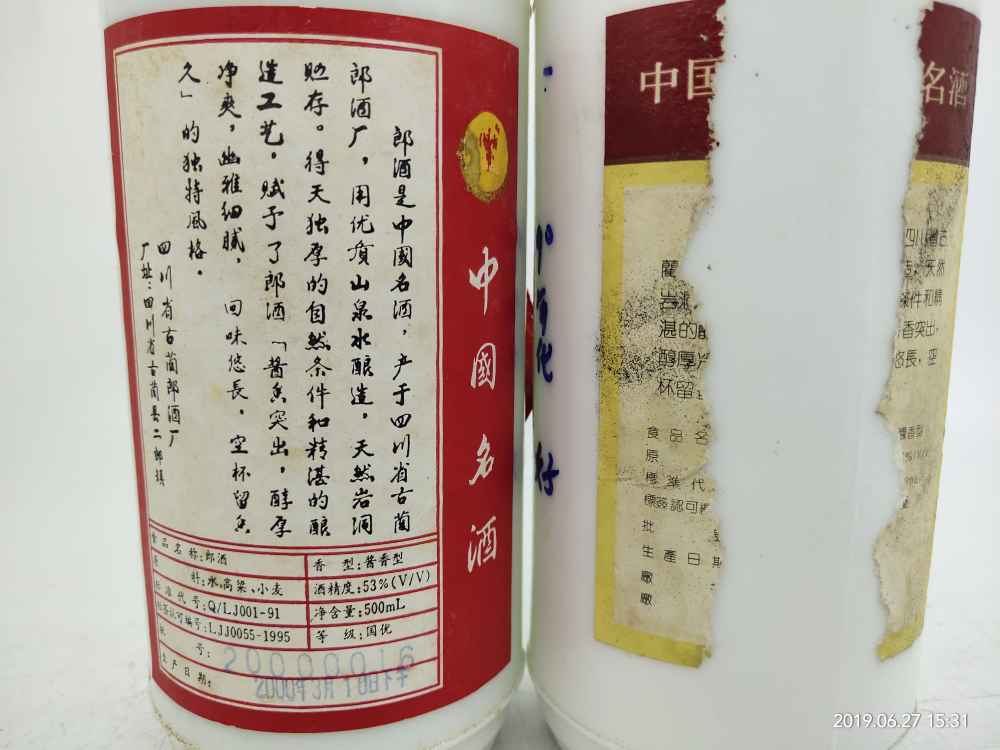 郎酒是中國名酒，产于四川省古蔺
郎酒厂，用优质山泉水酿造，天然岩洞
贮存。得天独厚的自然条件和精湛的酿
造工艺，赋予了郎酒「酱香突出，醇厚
净爽，幽雅细腻，回味悠長，空杯留香
久」的独特风格。
四川省古蔺郎酒厂
厂址：四川省古蔺县二郎镇
中國名酒
食品名称:郎酒
香型:酱香型
料:水、高粱、小麦
酒精度:53%(V/V)
标准代号:Q/LJ001-91
净含量:500mL
标签认可编号:LJJ0055-1995
等级:国优
号: 20000016
生产日期: 2000年3月10日
中国
名酒
蘭
岩
湛的
醇厚
杯留
四川省古
天然
條件和精
香突出，
悠長，空
食品名
原
標準代
標簽認可
批
生產日期
廠
廠
醬香型
2019.06.27 15:31